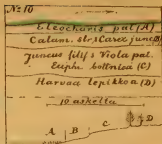 No 10
Eleocharis pal(A)
Calam. str.) Carex junc(B)
Juncus filif) Viola pal.
Euphr. bottnica (C)
Harvaa lepikkoa (D)
10 askelta
A B C D